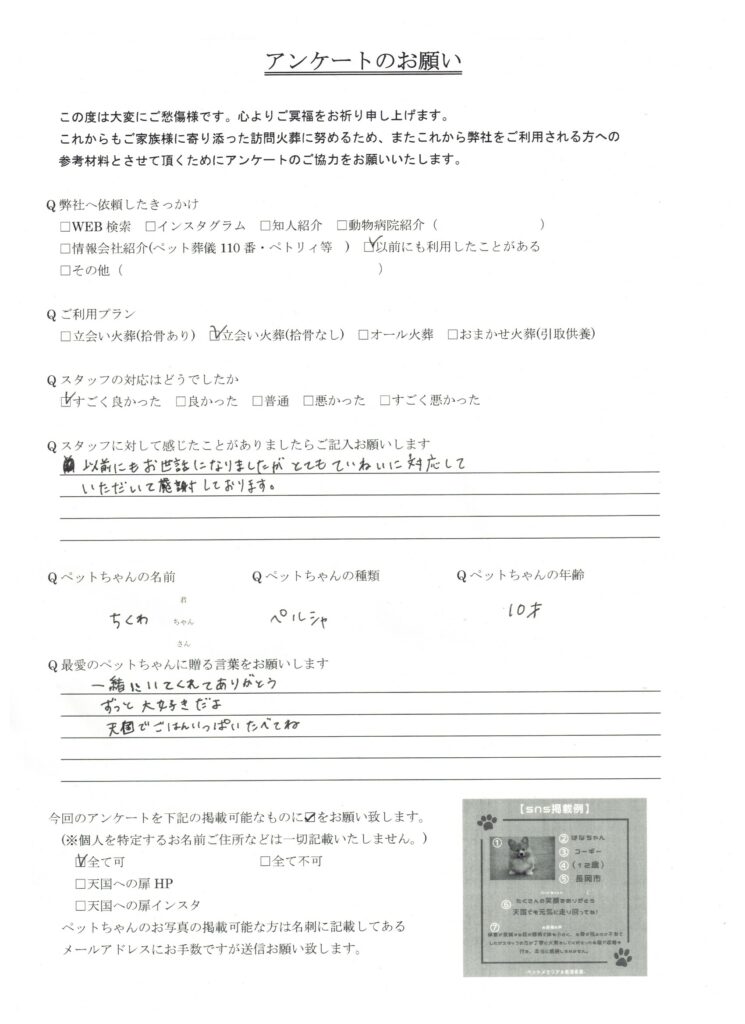 アンケートのお願い
この度は大変にご愁傷様です。心よりご冥福をお祈り申し上げます。
これからもご家族様に寄り添った訪問火葬に努めるため、またこれから弊社をご利用される方への
参考材料とさせて頂くためにアンケートのご協力をお願いいたします。
Q 弊社へ依頼したきっかけ
□WEB 検索 □インスタグラム □知人紹介 □動物病院紹介（ ）
□情報会社紹介(ペット葬儀 110 番・ペトリィ等 ) ☑以前にも利用したことがある
□その他（ ）
Q ご利用プラン
□立会い火葬(拾骨あり) ☑立会い火葬(拾骨なし) □オール火葬 □おまかせ火葬(引取供養)
Q スタッフの対応はどうでしたか
☑すごく良かった □良かった □普通 □悪かった □すごく悪かった
Q スタッフに対して感じたことがありましたらご記入お願いします
以前にもお世話になりましたがとてもていねいに対応して
いただいて感謝しております。
Q ペットちゃんの名前 Q ペットちゃんの種類 Q ペットちゃんの年齢
君
ちくわ ちゃん ペルシャ 10才
さん
Q 最愛のペットちゃんに贈る言葉をお願いします
一緒にいてくれてありがとう
ずっと大好きだよ
天国でごはんいっぱいたべてね
今回のアンケートを下記の掲載可能なものに☑をお願い致します。
(※個人を特定するお名前ご住所などは一切記載いたしません。)
☑全て可 □全て不可
□天国への扉 HP
□天国への扉インスタ
ペットちゃんのお写真の掲載可能な方は名刺に記載してある
メールアドレスにお手数ですが送信お願い致します。
【sns掲載例】
① ②はなちゃん
③コーギー
④(12歳)
⑤長岡市
⑥たくさんの笑顔をありがとう
天国でも元気に走り回ってね!
⑦